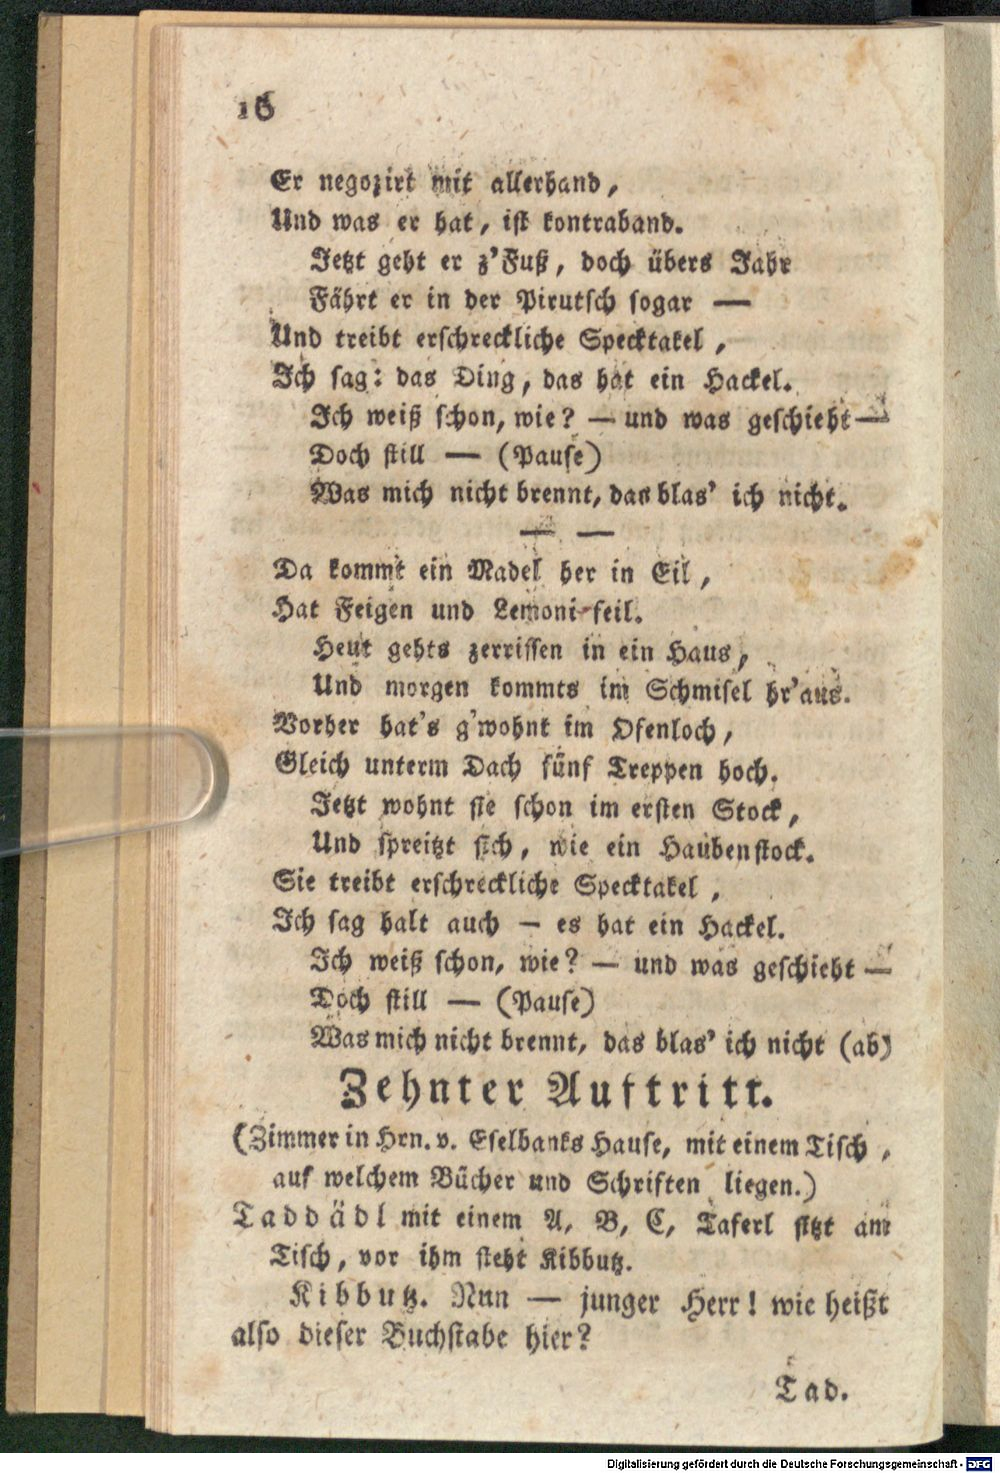 16
Er negozirt mit allerhand,
Und was er hat, ist kontraband.
Jetzt geht er z'Fuß, doch übers Jahr
Fährt er in der Pirutsch sogar —
Und treibt erschreckliche Specktakel,
Ich sag: das Ding, das hat ein Hackel.
Ich weiß schon, wie? — und was geschieht —
Doch still — (Pause)
Was mich nicht brennt, das blas' ich nicht.
— —
Da kommt ein Madel her in Eil,
Hat Feigen und Lemoni feil.
Heut gehts zerrissen in ein Haus,
Und morgen kommts im Schmisel hr'aus.
Vorher hat's g'wohnt im Ofenloch,
Gleich unterm Dach fünf Treppen hoch.
Jetzt wohnt sie schon im ersten Stock,
Und spreitzt sich, wie ein Haubenstock.
Sie treibt erschreckliche Specktakel,
Ich sag halt auch — es hat ein Hackel.
Ich weiß schon, wie? — und was geschieht —
Doch still — (Pause)
Was mich nicht brennt, das blas' ich nicht (ab)
Zehnter Auftritt.
(Zimmer in Hrn. v. Eselbanks Hause, mit einem Tisch,
auf welchem Bücher und Schriften liegen.)
Taddädl mit einem A, B, C, Taferl sitzt am
Tisch, vor ihm steht Kibbutz.
Kibbutz. Nun — junger Herr! wie heißt
also dieser Buchstabe hier?
Tad.
Digitalisierung gefördert durch die Deutsche Forschungsgemeinschaft - DFG